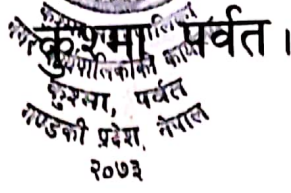 कुश्मा पर्वत ।
नगरपालिकाको कार्या
कुश्मा, पर्वत
गण्डकी प्रदेश, नेपाल
२०७३